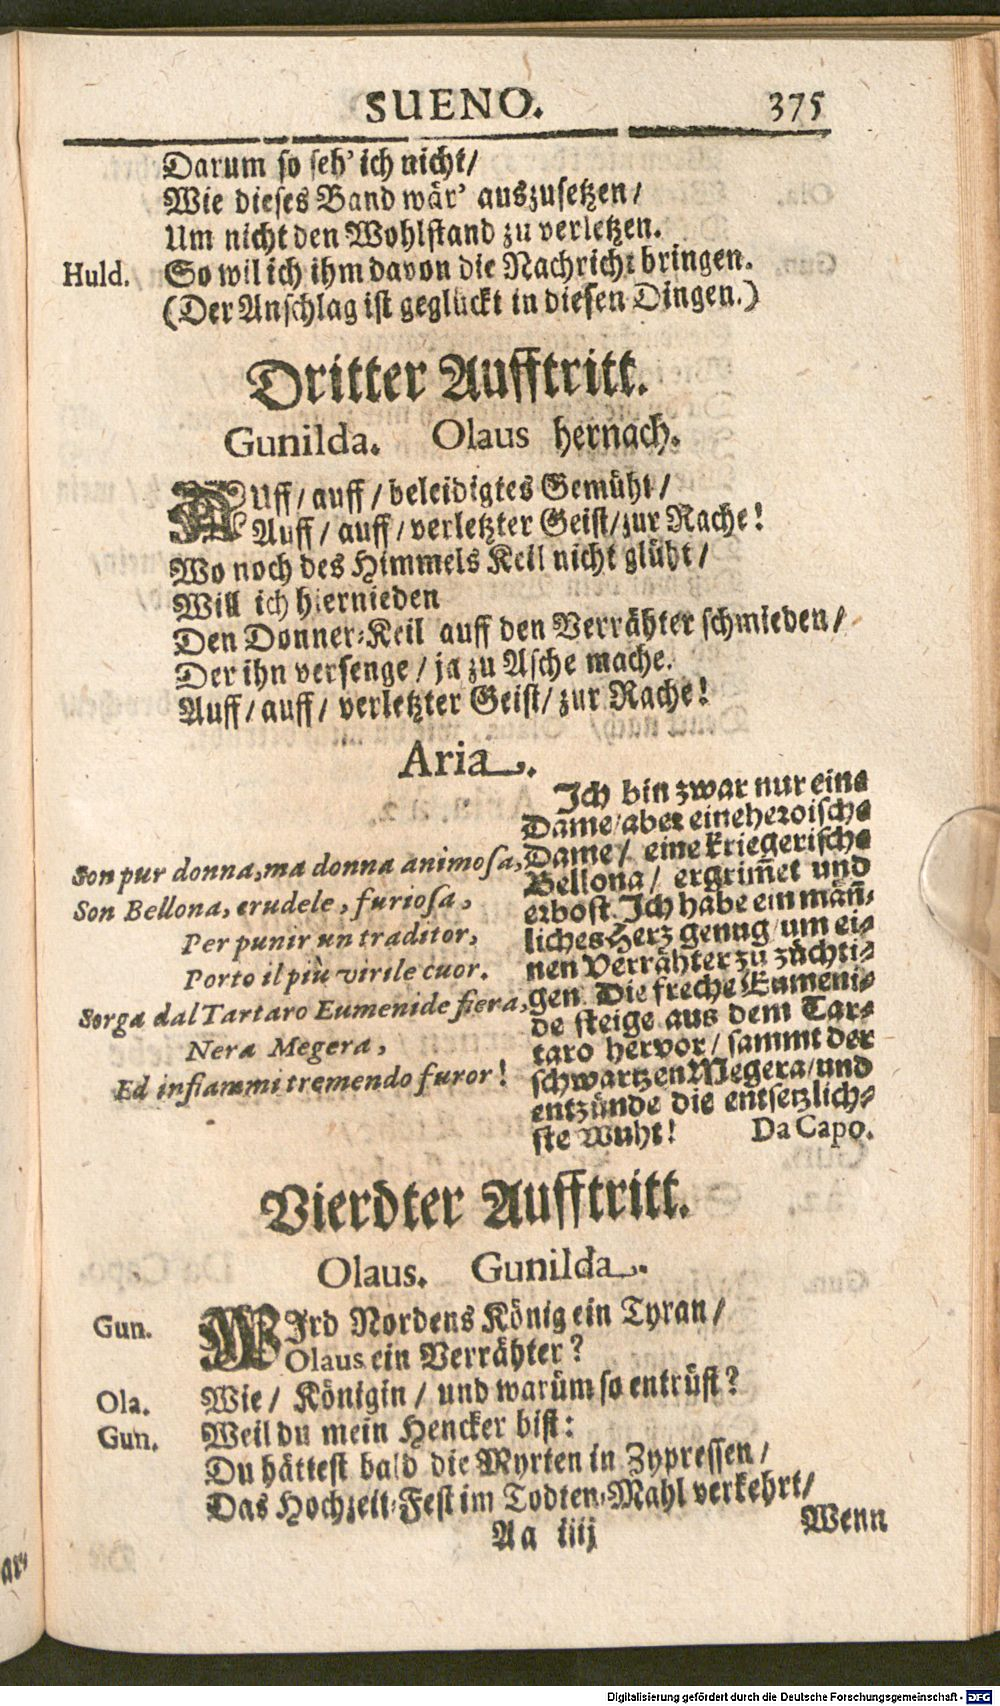 SUENO. 375
Darum so seh' ich nicht/
Wie dieses Band wär' auszusetzen/
Um nicht den Wohlstand zu verletzen.
Huld. So wil ich ihm davon die Nachricht bringen.
(Der Anschlag ist geglückt in diesen Dingen.)
Dritter Aufftritt.
Gunilda. Olaus hernach.
AUff/auff/beleidigtes Gemüht/
Auff/ auff/verletzter Geist/zur Rache!
Wo noch des Himmels Keil nicht glüht/
Will ich hiernieden
Den Donner-Keil auff den Verrähter schmieden/
Der ihn versenge/ja zu Asche mache.
Auff/auff/ verletzter Geist/zur Rache!
Aria.
Son pur donna, ma donna animosa,
Son Bellona, crudele, furiosa,
Per punir un traditor,
Porto il più virile cuor.
Sorga dal Tartaro Eumenide fiera,
Nera Megera,
Ed infiammi tremendo furor!
Ich bin zwar nur eine
Dame/aber eine heroische
Dame/ eine kriegerische
Bellona/ ergrim̅et und
erbost. Ich habe ein män̅-
liches Herz genug/um ei-
nen Verrähter zu züchti-
gen. Die freche Eumeni-
de steige aus dem Tar-
taro hervor/sammt der
schwartzen Megera/und
entzünde die entsetzlich-
ste Wuht! Da Capo.
Vierdter Aufftritt.
Olaus. Gunilda.
Gun. WIrd Nordens König ein Tyran/
Olaus ein Verrähter?
Ola. Wie/ Königin/ und warüm so entrüst?
Gun. Weil du mein Hencker bist:
Du hättest bald die Myrten in Zypressen/
Das Hochzeit-Fest im Todten-Mahl verkehrt/
Aa iiij Wenn
ar-
Digitalisierung gefördert durch die Deutsche Forschungsgemeinschaft - DFG